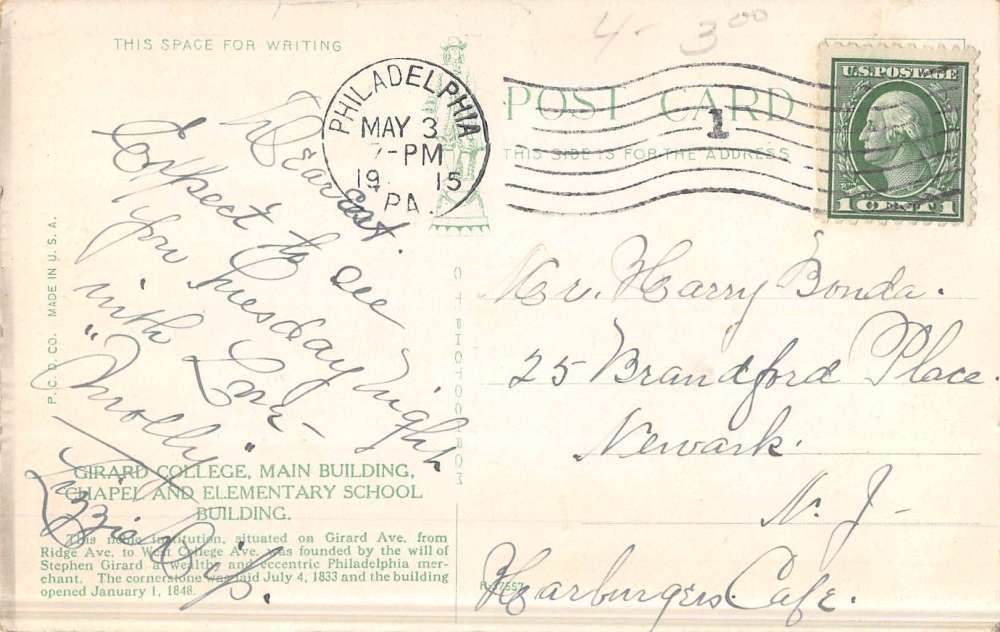 4- 3⁰⁰
THIS SPACE FOR WRITING
PHILADELPHIA
MAY 3
7-PM
19 15
PA.
1
POST CARD
THIS SIDE IS FOR THE ADDRESS
U.S. POSTAGE
1 CENT 1
Dearest.
Expect to see
you Tuesday Night
with Love-
"Molly"
Lizzie
P. C. D. CO. MADE IN U. S. A.
C T PHOTOCROM
Mr. Harry Bonda.
25 Brandford Place.
Newark.
N. J-
Harburgers. Cafe.
GIRARD COLLEGE, MAIN BUILDING,
CHAPEL AND ELEMENTARY SCHOOL
BUILDING.
This noble institution, situated on Girard Ave. from
Ridge Ave. to West College Ave. was founded by the will of
Stephen Girard a wealthy and eccentric Philadelphia mer-
chant. The cornerstone was laid July 4, 1833 and the building
opened January 1, 1848.